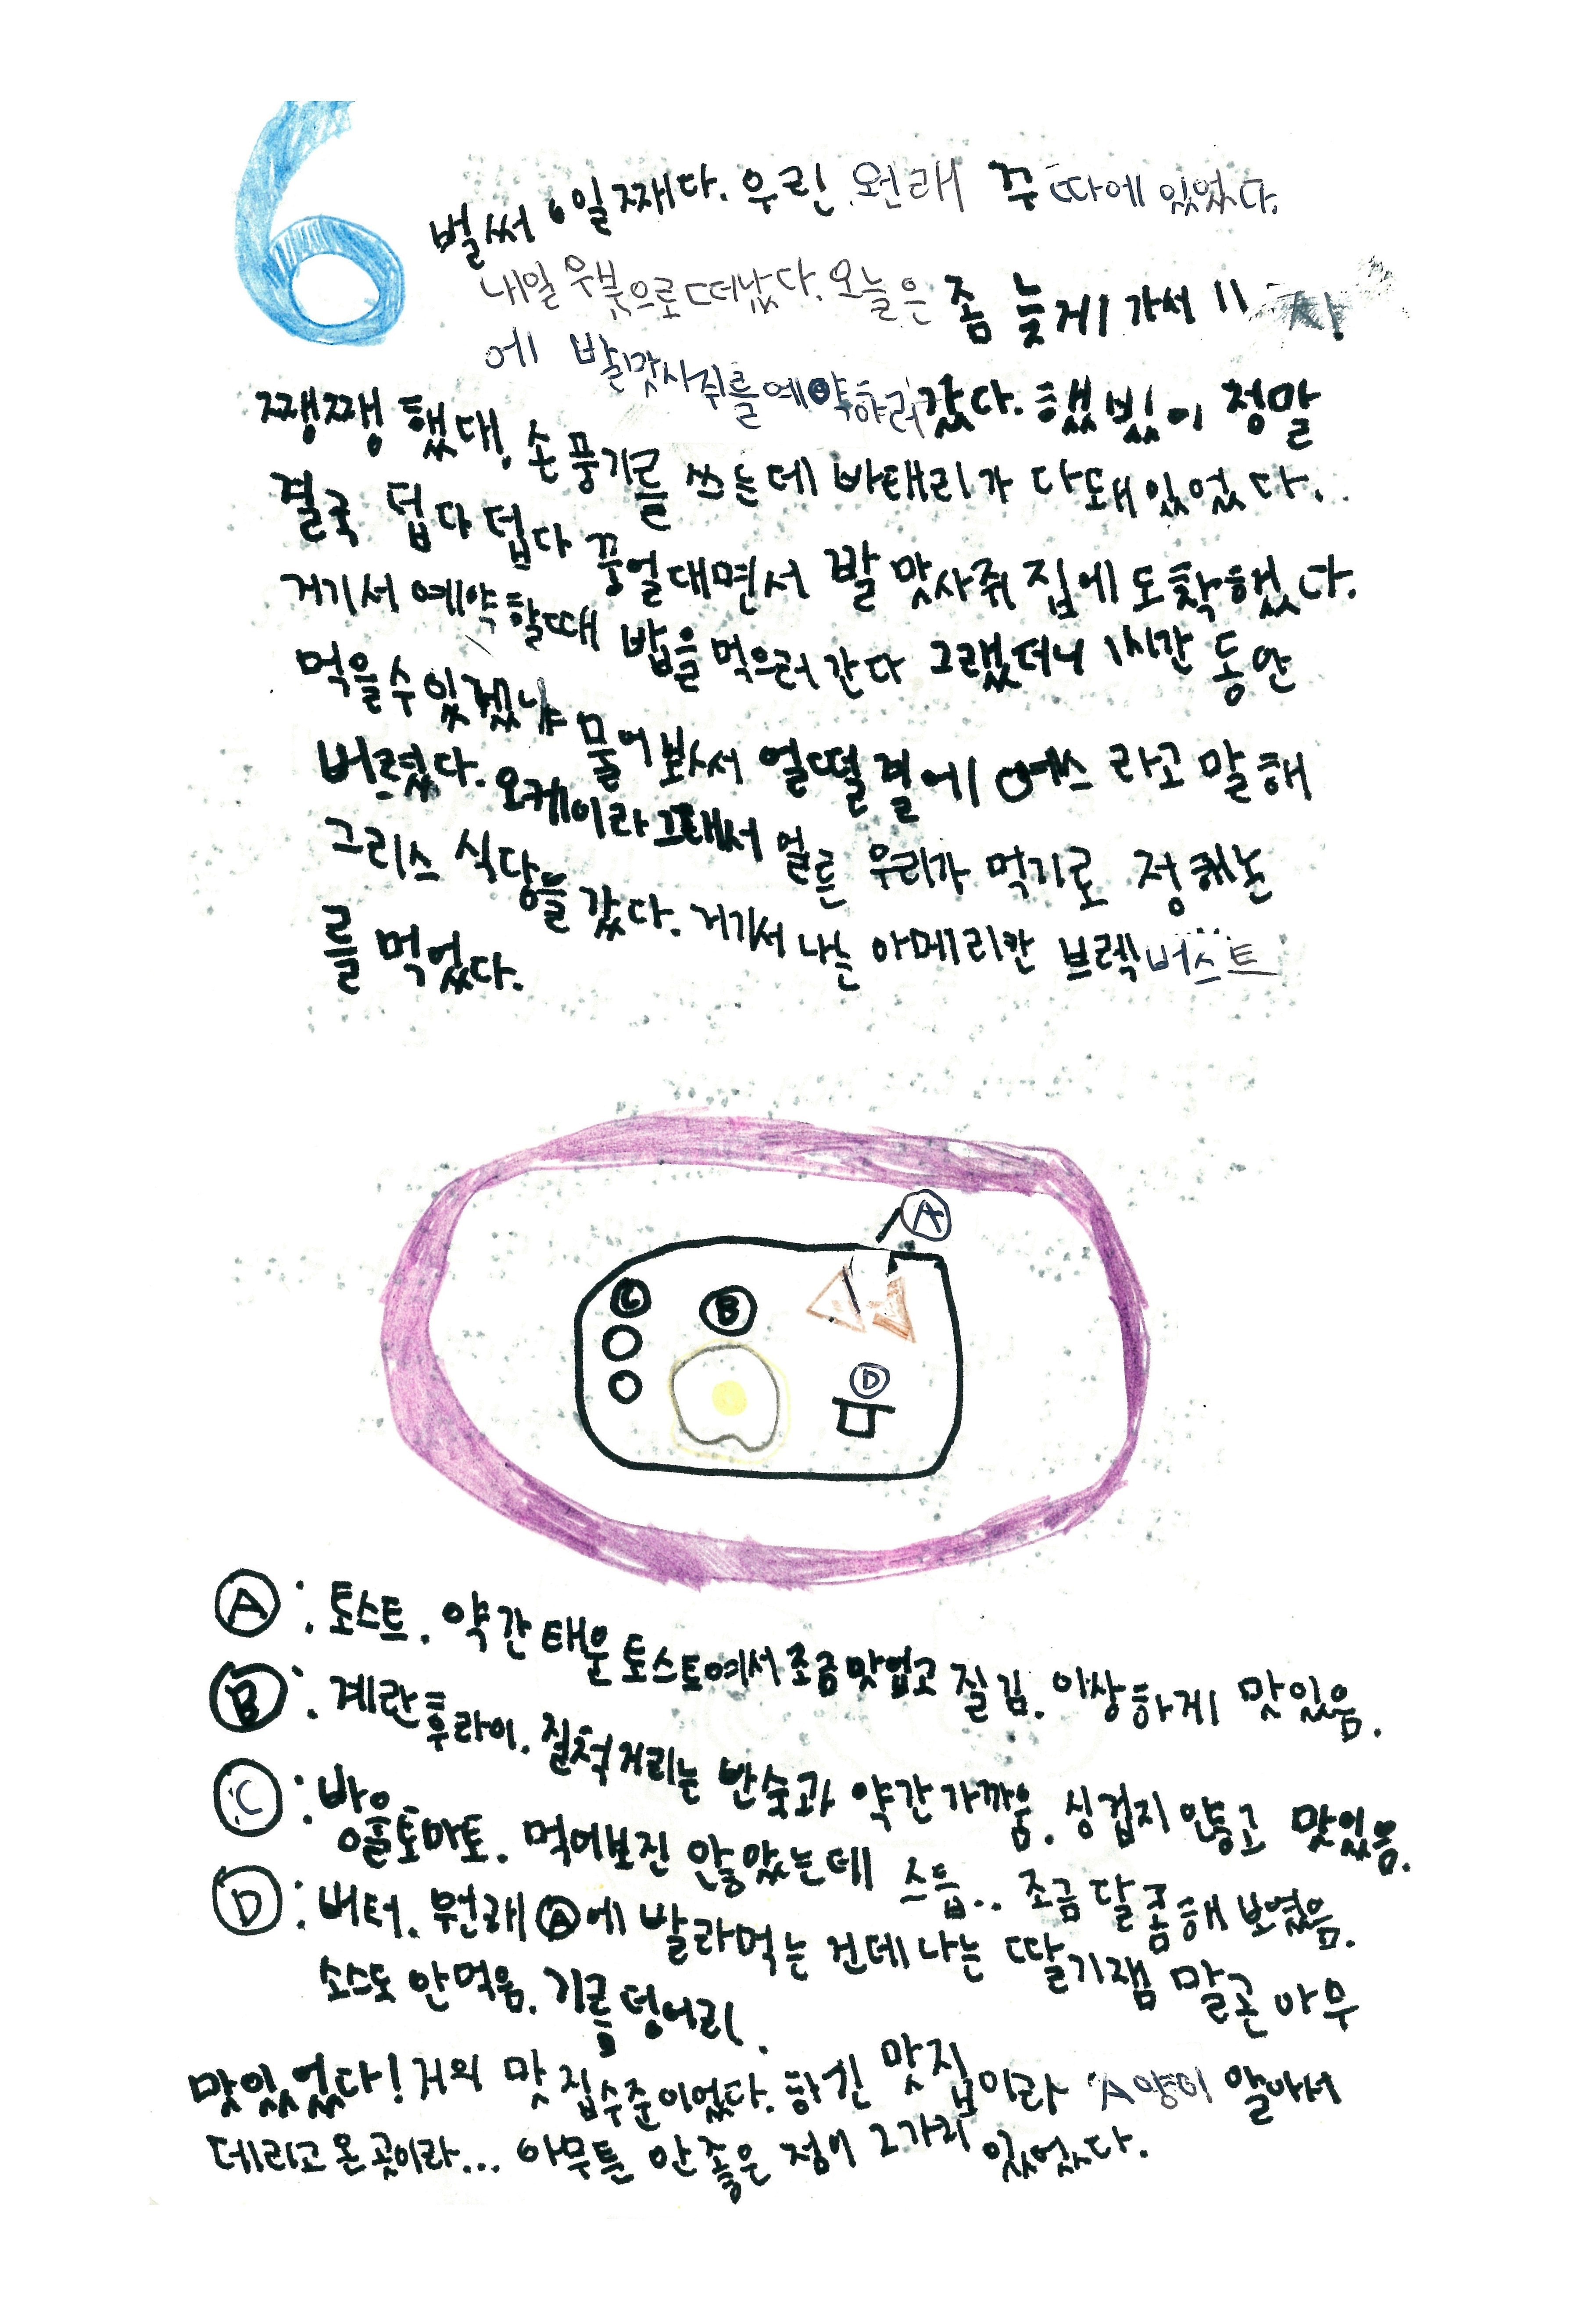 6
벌써 6일째다. 우린 원래 꾸따에 있었다.
내일 우붓으로 떠났다. 오늘은 좀 늦게 가서 11시
에 발맛사쥐를 예약하러 갔다. 햇빛이 정말
쨍쨍했대, 손풍기를 쓰는데 바태리가 다돼있었다.
결국 덥다덥다 꿍얼대면서 발 맛사쥐 집에 도착했다.
거기서 예약할때 밥을 먹으러 간다 그랬더니 1시간 동안
먹을수있겠냐 물어봐서 얼떨결에 예스 라고 말해
버렸다. 오케이라 그래서 얼른 우리가 먹기로 정해논
그리스 식당을 갔다. 거기서 나는 아메리칸 브렉버스트
를 먹었다.
A
C B
D
A: 토스트. 약간 태운 토스트여서 조금 맛없고 질김. 이상하게 맛있음.
B: 계란후라이. 질척거리는 반숙과 약간 가까움. 싱겁지 않고 맛있음.
C: 방울토마토. 먹어보진 않았는데 스틉.. 조금 달콤해 보였음.
D: 버터. 원래 A에 발라먹는 건데 나는 딸기잼 말곤 아무
소스도 안먹음. 기름덩어리.
맛있었다! 거의 맛집수준이었다. 하긴 맛집이라 A양이 알아서
데리고 온 곳이라... 아무튼 안좋은 점이 2가지 있었다.